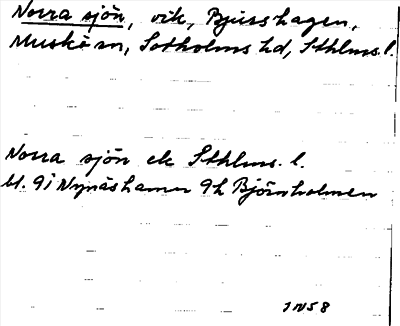 Norra sjön, vik, Bjursshagen,
Muskö sn, Sotholms hd, Sthlms l.
Norra sjön ek Sthlms. l.
bl. 9i Nynäshamn 9h Björnholmen
JN58